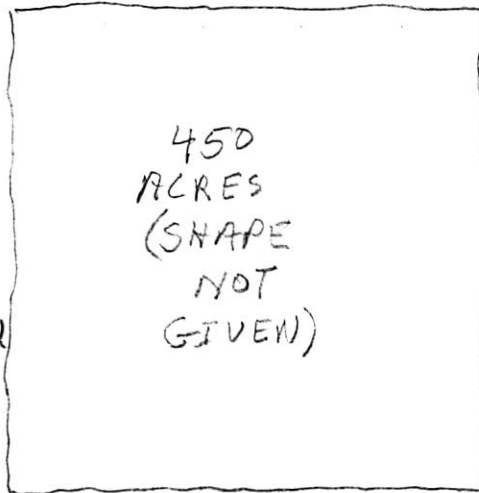 450
ACRES
(SHAPE
NOT
GIVEN)